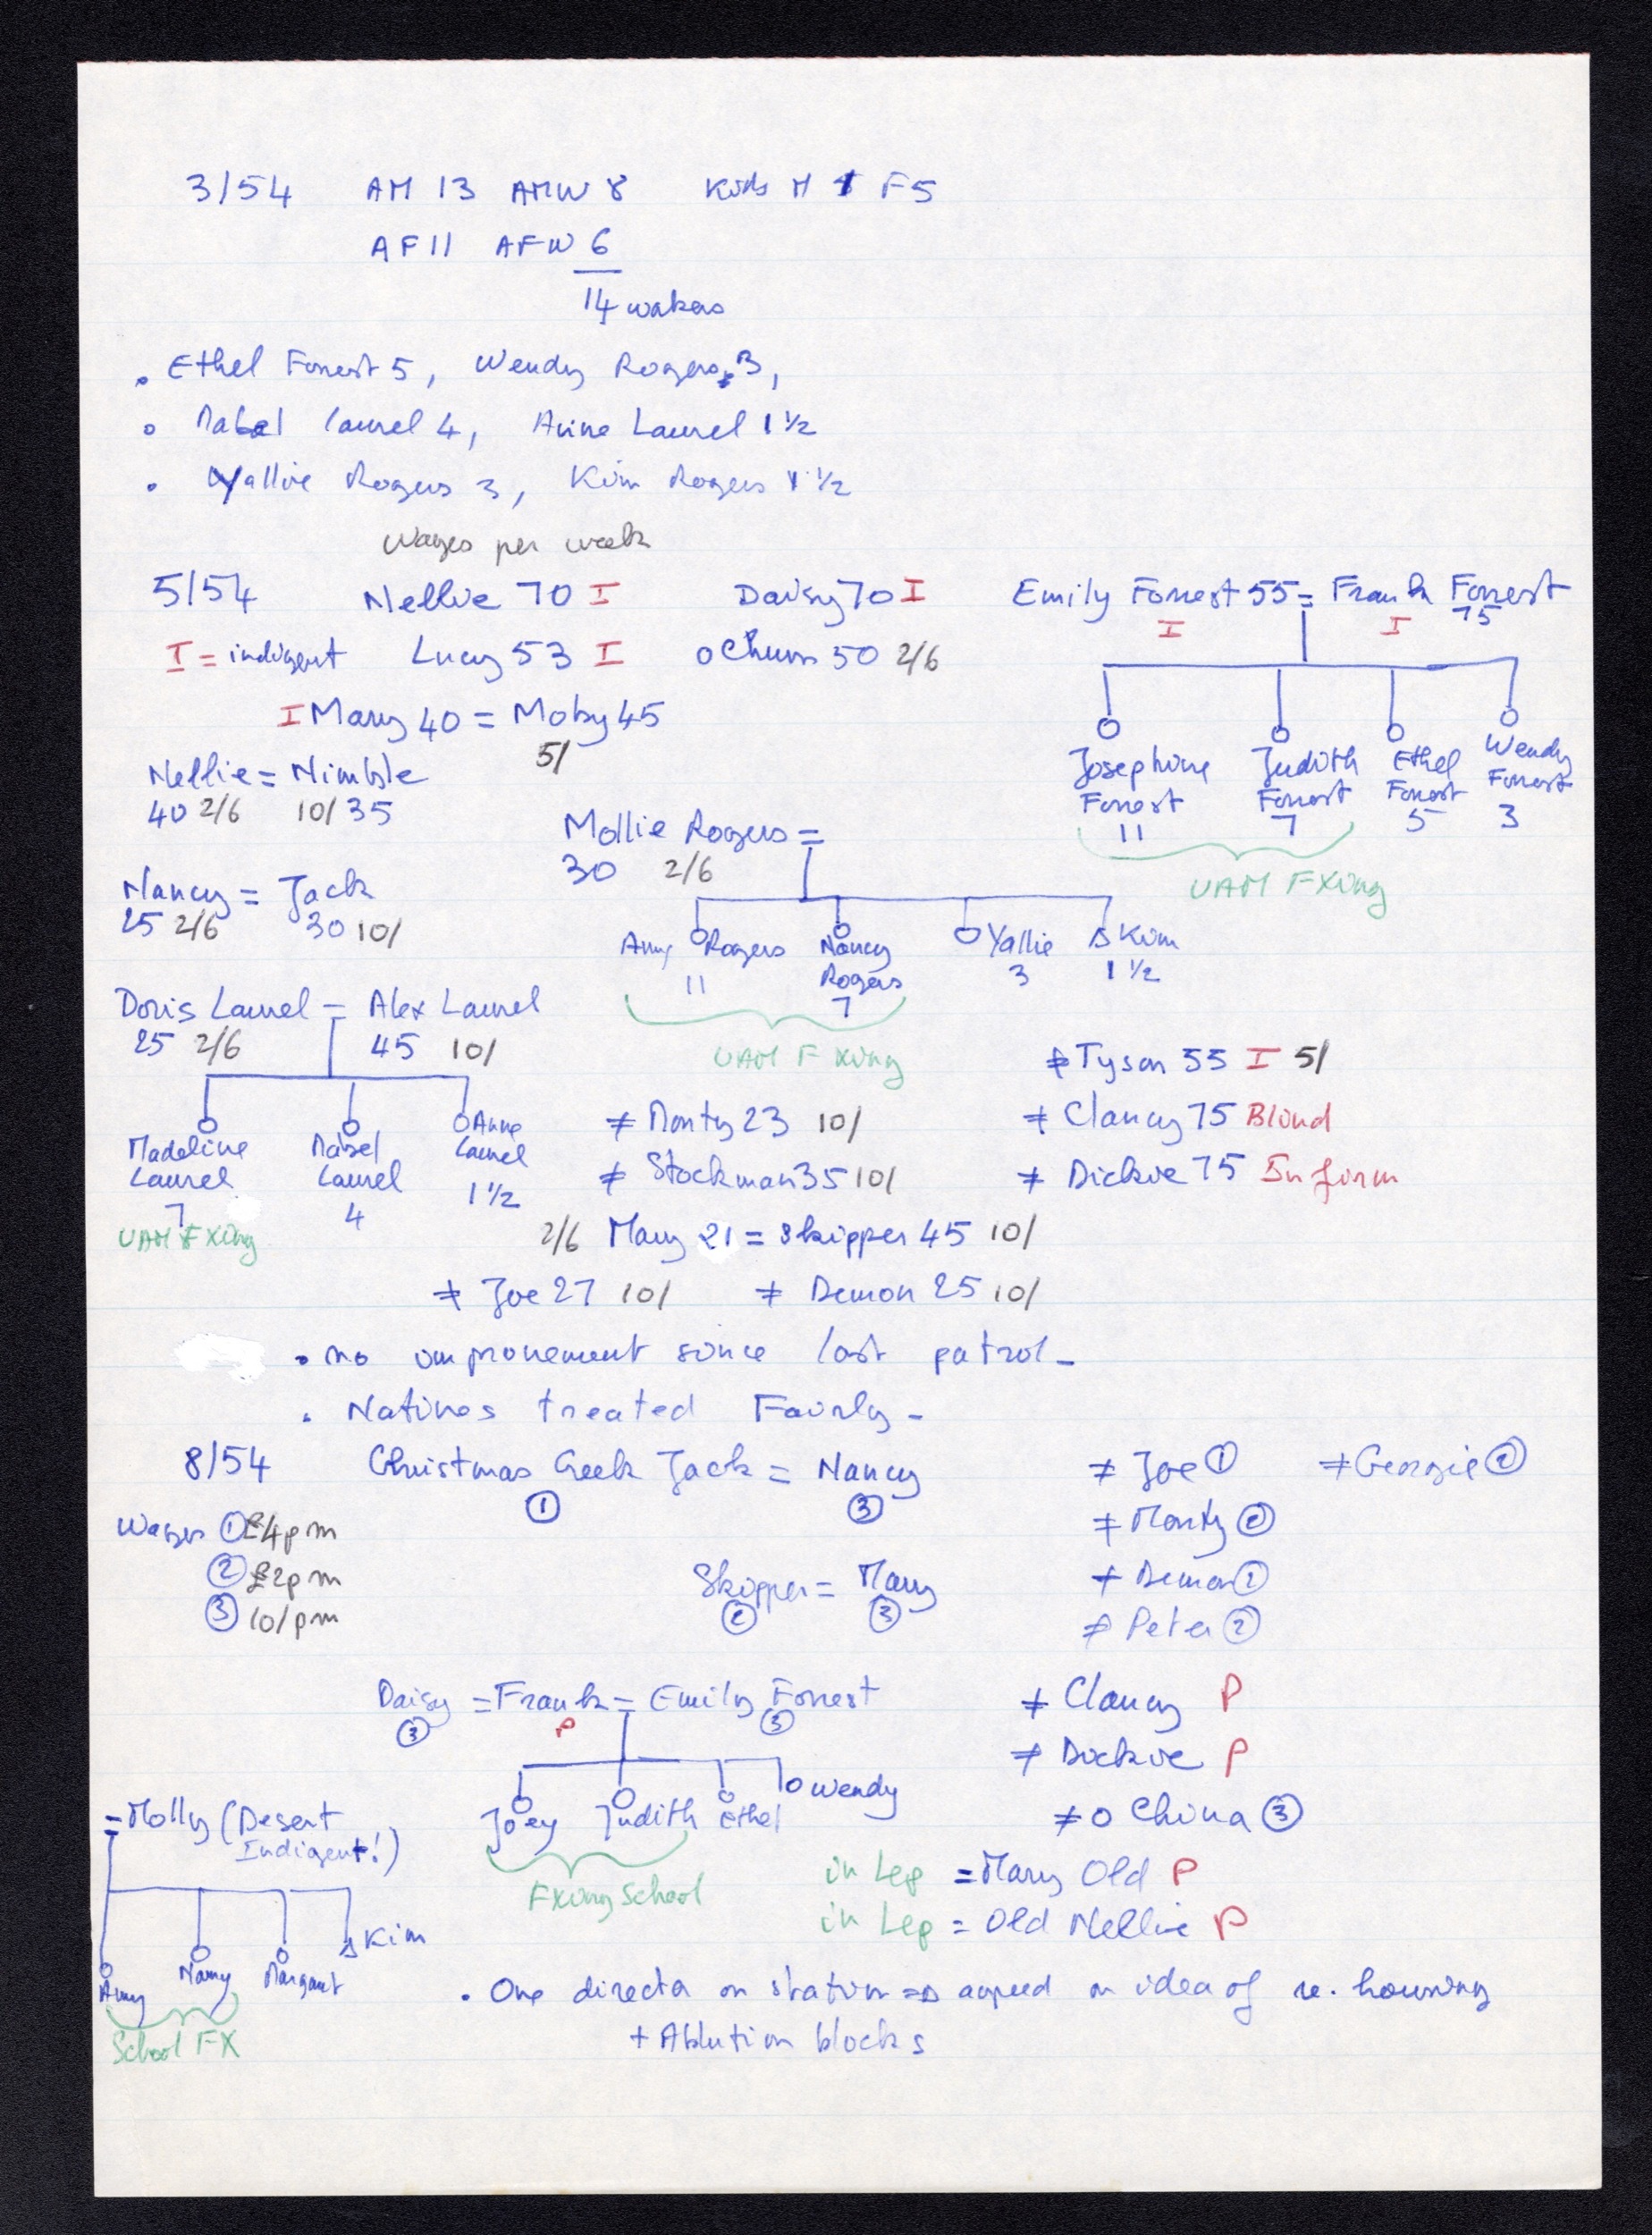 3/54 AM 13 AMW 8 Kids M 1 F5
AF11 AFW 6
14 wakers
• Ethel Forrest 5, Wendy Rogers 3,
• Mabel Laurel 4, Anne Laurel 1 ½
• Yallie Rogers 3, Kim Rogers 1 ½
Wages per week
5/54 Nellie 70 I Daisy 70 I Emily Forrest 55 = Frank Forrest 75
I I
I = indigent Lucy 53 I o Chum 50 2/6
I Mary 40 = Moby 45
5/
Josephine Forrest 11
Judith Forrest 7
Ethel Forrest 5
Wendy Forrest 3
UAM FXing
Nellie = Nimble
40 2/6 10/ 35
Mollie Rogers =
30 2/6
Nancy = Jack
25 2/6 30 10/
Amy Rogers 11
Nancy Rogers 7
Yallie 3
Kim 1 ½
UAM F Xing
Doris Laurel = Alex Laurel
25 2/6 45 10/
Madeline Laurel 7
Mabel Laurel 4
Anne Laurel 1 ½
UAM FXing
≠ Tyson 55 I 5/
≠ Monty 23 10/ ≠ Clancy 75 Blind
≠ Stockman 35 10/ ≠ Dickie 75 Infirm
2/6 Mary 21 = Skipper 45 10/
≠ Joe 27 10/ ≠ Demon 25 10/
• no improvement since last patrol -
• Natives treated Fairly -
8/54 Christmas Creek Jack = Nancy ≠ Joe ① ≠ Georgie ②
① ③
Wages ① £4pm ≠ Monty ②
② £2pm Skipper = Mary ≠ Demon ②
③ 10/pm ② ③ ≠ Peter ②
Daisy = Frank = Emily Forrest ≠ Clancy P
③ P ③
≠ Dickie P
Joey Judith Ethel Wendy
≠ o China ③
FXing School
= Molly (Desert Indigent!)
in Lep = Mary Old P
in Lep = Old Nellie P
Amy Nancy Margaret Kim
School FX
• One director on station ⇒ agreed on idea of re. housing
+ Ablution blocks